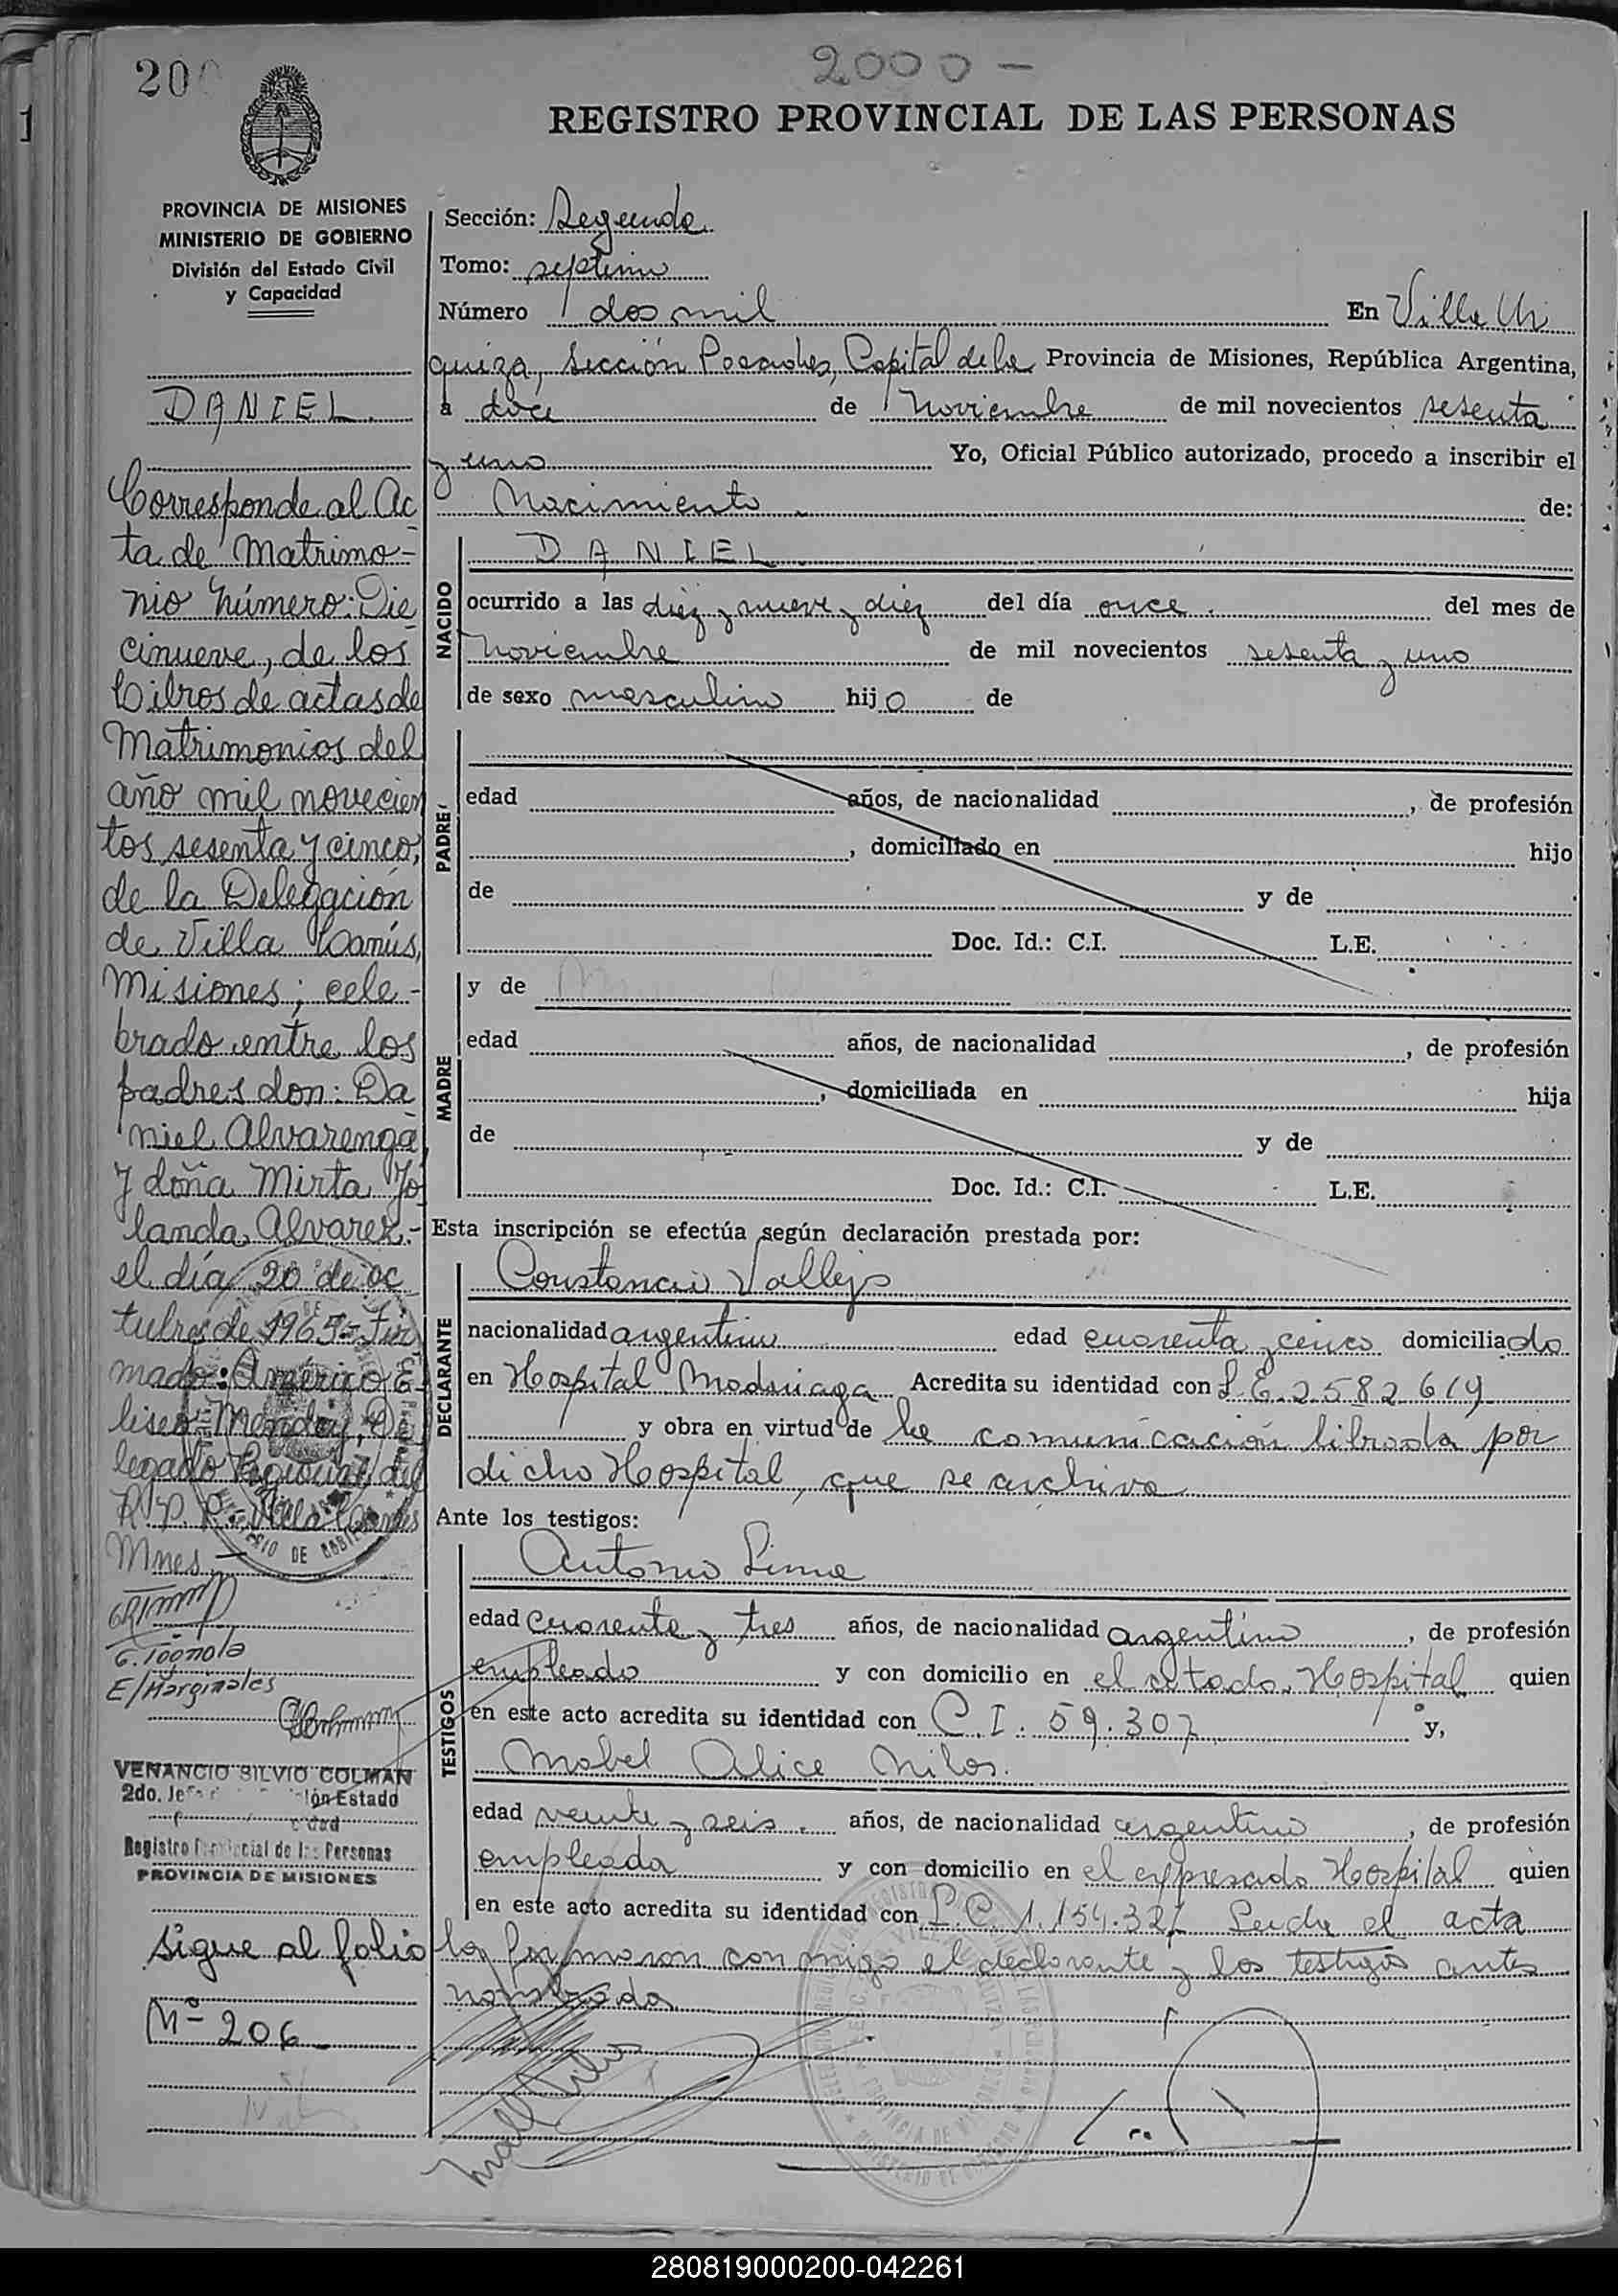 200
2000 -
REGISTRO PROVINCIAL DE LAS PERSONAS
PROVINCIA DE MISIONES
MINISTERIO DE GOBIERNO
División del Estado Civil
y Capacidad
DANIEL.
Corresponde al Ac
ta de Matrimo-
nio número: Die
cinueve, de los
Libros de actas de
Matrimonios del
año mil novecien
tos sesenta y cinco,
de la Delegación
de Villa Lanús,
Misiones; cele-
brado entre los
padres don: Da
niel Alvarenga
y doña Mirta Yo
landa Alvarez.-
el día 20 de oc
tubre de 1965- Fir
mado: Américo E-
liseo Mendoy, De
legado Regional del
R. P. P.- Villa Lanús
Mnes.-
G. Tognola
E/Marginales
VENANCIO SILVIO COLMAN
2do. Jefe ión Estado
Registro Provincial de las Personas
PROVINCIA DE MISIONES
Sigue al folio
Nº 206
Sección: Segunda
Tomo: septimo
Número dos mil En Villa Ur
quiza, Sección Posadas, Capital de la Provincia de Misiones, República Argentina,
a doce de Noviembre de mil novecientos sesenta
y uno Yo, Oficial Público autorizado, procedo a inscribir el
Nacimiento de:
NACIDO
DANIEL
ocurrido a las diez y nueve y diez del día once. del mes de
Noviembre de mil novecientos sesenta y uno
de sexo masculino hijo de
PADRE
edad años, de nacionalidad , de profesión
, domiciliado en hijo
de y de
Doc. Id.: C.I. L.E.
MADRE
y de
edad años, de nacionalidad , de profesión
, domiciliada en hija
de y de
Doc. Id.: C.I. L.E.
Esta inscripción se efectúa según declaración prestada por:
DECLARANTE
Constancio Vallejo
nacionalidad argentino edad cuarenta y cinco domiciliado
en Hospital Madariaga Acredita su identidad con L.E. 2582619
y obra en virtud de la comunicación librada por
dicho Hospital, que se archiva
Ante los testigos:
TESTIGOS
Antonio Lima
edad cuarenta y tres años, de nacionalidad argentino, de profesión
empleado y con domicilio en el citado Hospital quien
en este acto acredita su identidad con C.I. 59.307 y,
Mabel Alice Milos.
edad veinte y seis. años, de nacionalidad argentina, de profesión
empleada y con domicilio en el expresado Hospital quien
en este acto acredita su identidad con L.C. 1.154.321 Leida el acta
la firmaron conmigo el declarante y los testigos antes
nombrados
280819000200-042261